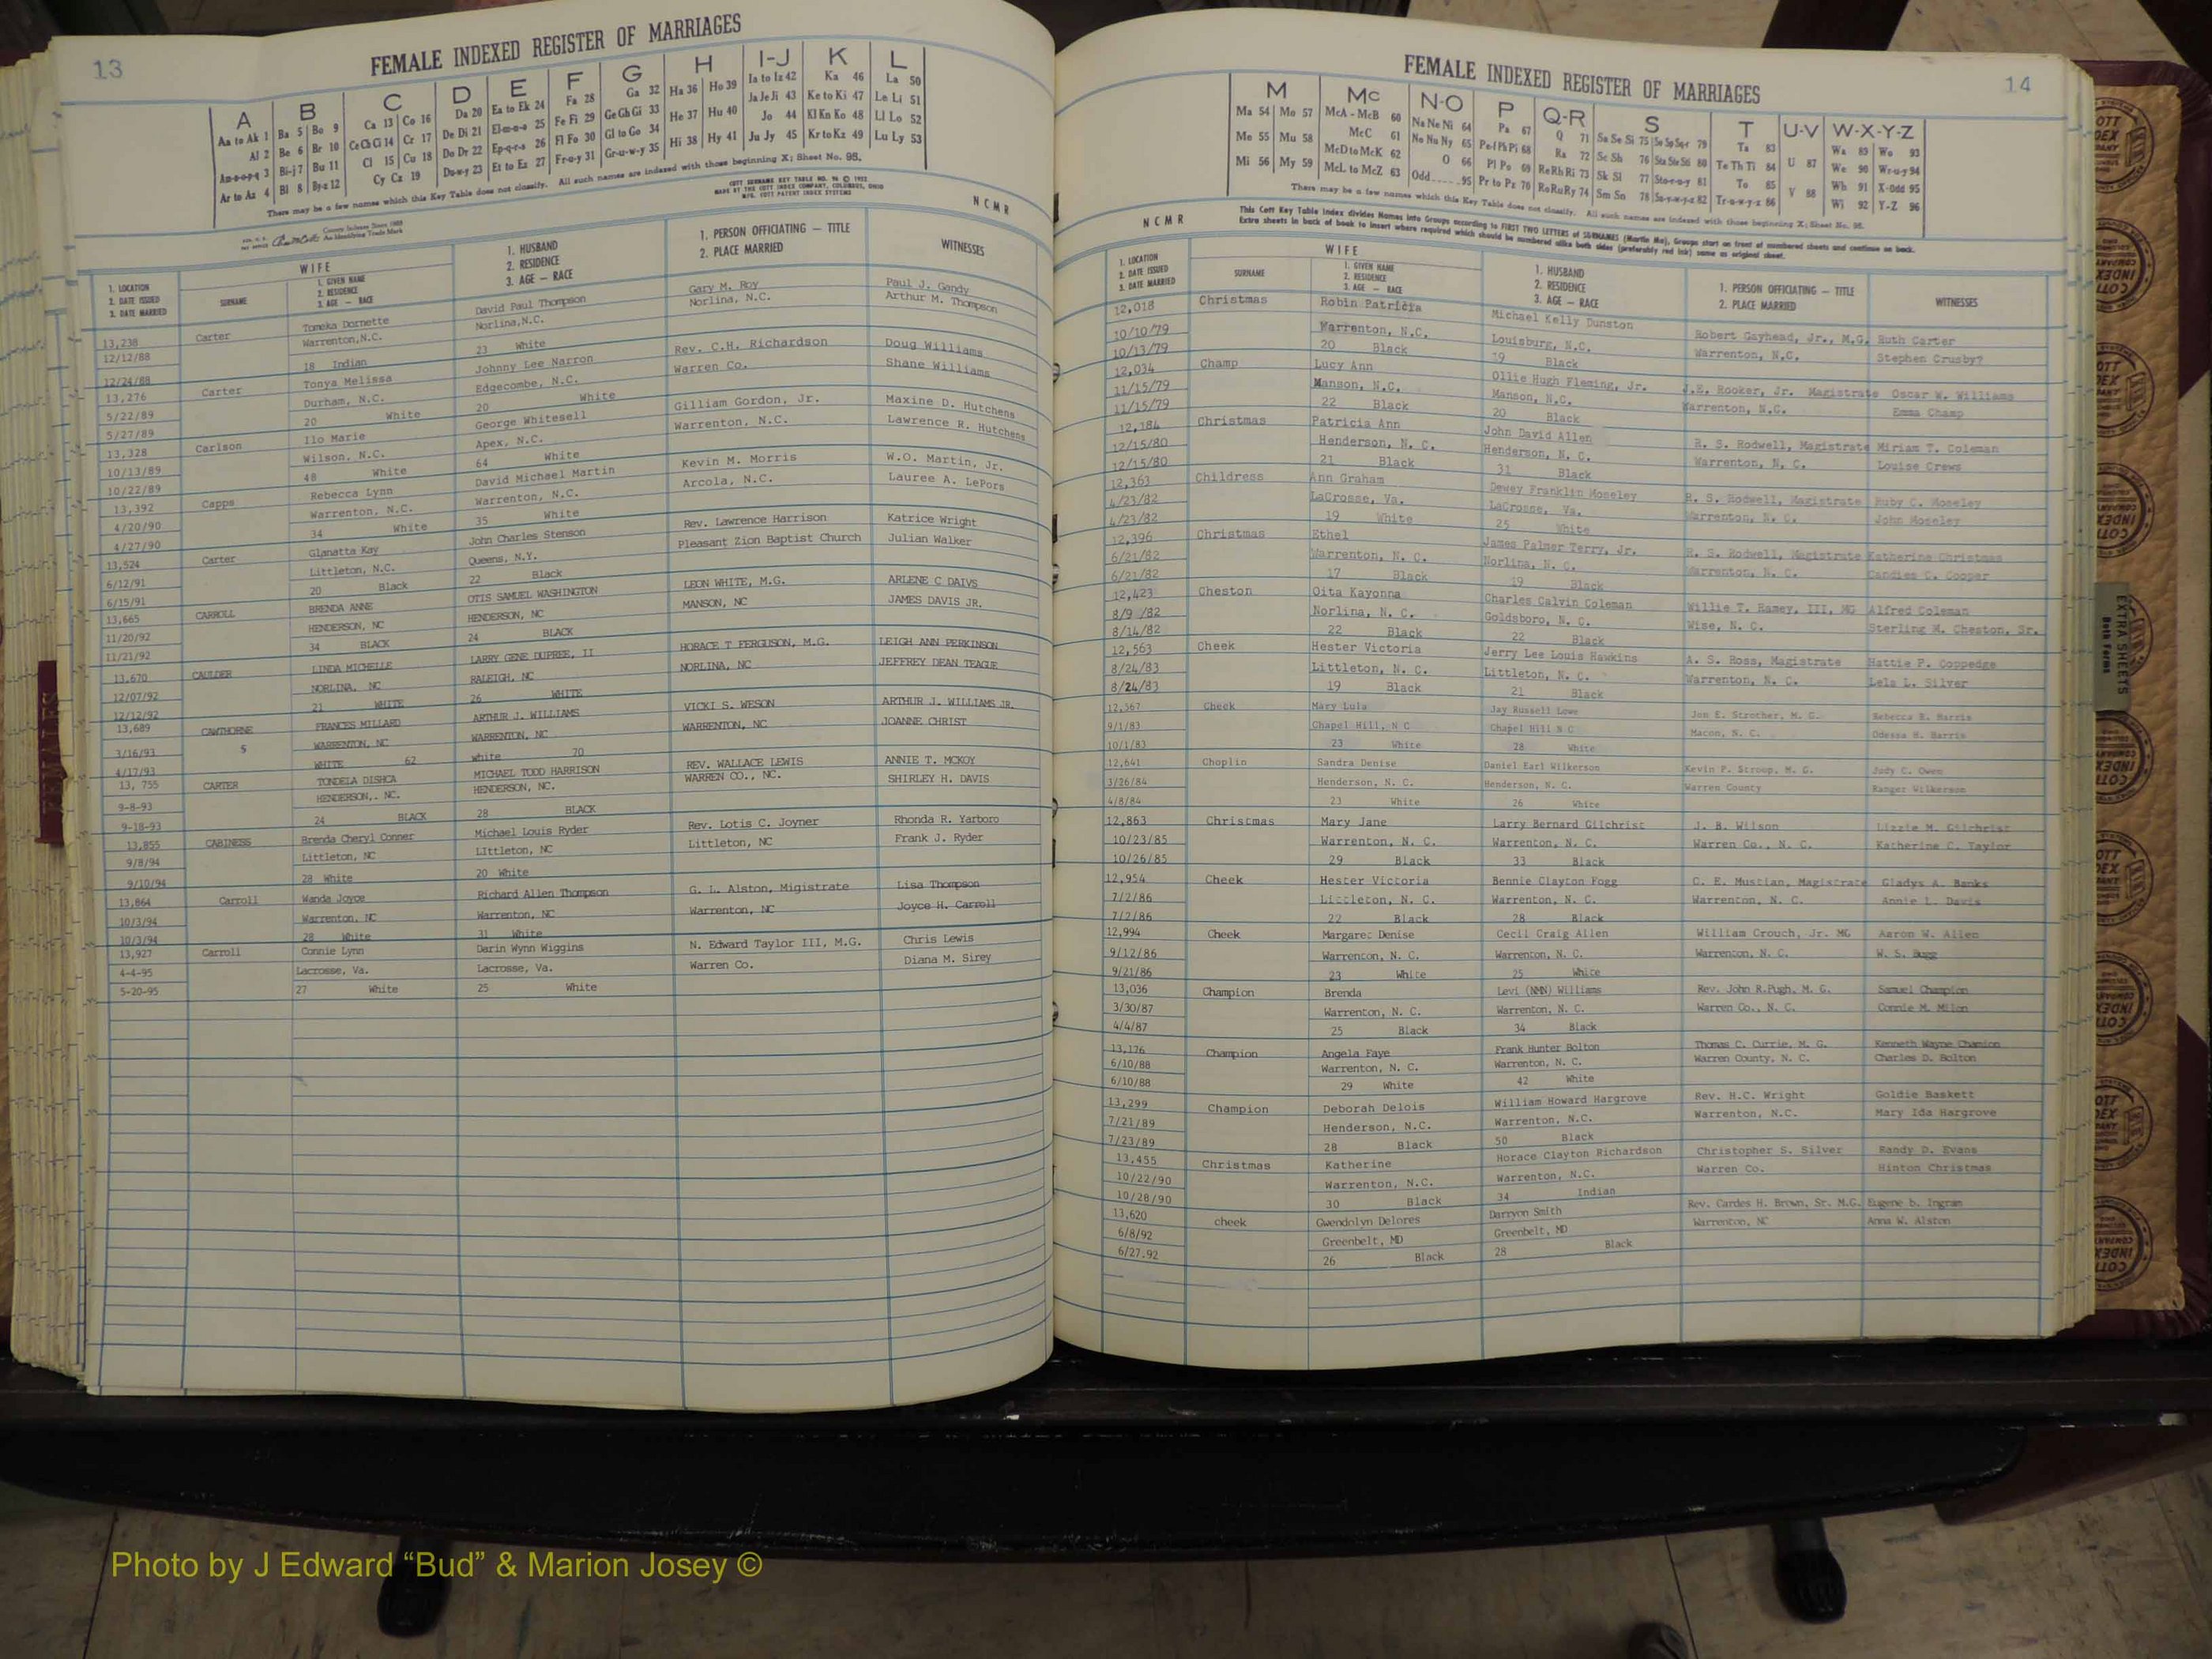 13
FEMALE INDEXED REGISTER OF MARRIAGES
A B C D E F G H I-J K L
Aa to Ak 1 Ba 5 Bo 9 Ca 13 Co 16 Da 20 Ea to Ek 24 Fa 28 Ga 32 Ha 36 Ho 39 Ia to Iz 42 Ka 46 La 50
Al 2 Be 6 Br 10 Ce Ch Ci 14 Cr 17 De Di 21 El-m-n-o 25 Fe Fi 29 Ge Gh Gi 33 He 37 Hu 40 Ja Je Ji 43 Ke to Ki 47 Le Li 51
Am-n-o-p-q 3 Bi-j 7 Bu 11 Cl 15 Cu 18 Do Dr 22 Ep-q-r-s 26 Fl Fo 30 Gl to Go 34 Hi 38 Hy 41 Jo 44 Kl Kn Ko 48 Ll Lo 52
Ar to Az 4 Bl 8 By-z 12 Cy Cz 19 Du-w-y 23 Et to Ez 27 Fr-u-y 31 Gr-u-w-y 35 Ju Jy 45 Kr to Kz 49 Lu Ly 53
There may be a few names which this Key Table does not classify. All such names are indexed with those beginning X; Sheet No. 95.
COTT SURNAME KEY TABLE NO. 96 © 1952
MADE BY THE COTT INDEX COMPANY, COLUMBUS, OHIO
MFG. COTT PATENT INDEX SYSTEMS
NCMR
County Indexes Since 1888
An Identifying Trade Mark
1. LOCATION
2. DATE ISSUED
3. DATE MARRIED
WIFE
SURNAME
1. GIVEN NAME
2. RESIDENCE
3. AGE - RACE
1. HUSBAND
2. RESIDENCE
3. AGE - RACE
1. PERSON OFFICIATING - TITLE
2. PLACE MARRIED
WITNESSES
13,238 Carter Tomeka Dornette David Paul Thompson Gary M. Roy Paul J. Gandy
12/12/88 Warrenton,N.C. Norlina,N.C. Norlina, N.C. Arthur M. Thompson
12/24/88 18 Indian 23 White
13,276 Carter Tonya Melissa Johnny Lee Narron Rev. C.H. Richardson Doug Williams
5/22/89 Durham, N.C. Edgecombe, N.C. Warren Co. Shane Williams
5/27/89 20 White 20 White
13,328 Carlson Ilo Marie George Whitesell Gilliam Gordon, Jr. Maxine D. Hutchens
10/13/89 Wilson, N.C. Apex, N.C. Warrenton, N.C. Lawrence R. Hutchens
10/22/89 48 White 64 White
13,392 Capps Rebecca Lynn David Michael Martin Kevin M. Morris W.O. Martin, Jr.
4/20/90 Warrenton, N.C. Warrenton, N.C. Arcola, N.C. Lauree A. LePors
4/27/90 34 White 35 White
13,524 Carter Glanatta Kay John Charles Stenson Rev. Lawrence Harrison Katrice Wright
6/12/91 Littleton, N.C. Queens, N.Y. Pleasant Zion Baptist Church Julian Walker
6/15/91 20 Black 22 Black
13,665 CARROLL BRENDA ANNE OTIS SAMUEL WASHINGTON LEON WHITE, M.G. ARLENE C DAIVS
11/20/92 HENDERSON, NC HENDERSON, NC MANSON, NC JAMES DAVIS JR.
11/21/92 34 BLACK 24 BLACK
13,670 CAULDER LINDA MICHELLE LARRY GENE DUPREE, II HORACE T FERGUSON, M.G. LEIGH ANN PERKINSON
12/07/92 NORLINA, NC RALEIGH, NC NORLINA, NC JEFFREY DEAN TEAGUE
12/12/92 21 WHITE 26 WHITE
13,689 CAWTHORNE FRANCES MILLARD ARTHUR J. WILLIAMS VICKI S. WESON ARTHUR J. WILLIAMS JR.
3/16/93 S WARRENTON, NC WARRENTON, NC WARRENTON, NC JOANNE CHRIST
4/17/93 WHITE 62 white 70
13, 755 CARTER TONDELA DISHCA MICHAEL TODD HARRISON REV. WALLACE LEWIS ANNIE T. MCKOY
9-8-93 HENDERSON,. NC. HENDERSON, NC. WARREN CO., NC. SHIRLEY H. DAVIS
9-18-93 24 BLACK 28 BLACK
13,855 CABINESS Brenda Cheryl Conner Michael Louis Ryder Rev. Lotis C. Joyner Rhonda R. Yarboro
9/8/94 Littleton, NC LIttleton, NC Littleton, NC Frank J. Ryder
9/10/94 28 White 20 White
13,864 Carroll Wanda Joyce Richard Allen Thompson G. L. Alston, Migistrate Lisa Thompson
10/3/94 Warrenton, NC Warrenton, NC Warrenton, NC Joyce H. Carroll
10/3/94 28 White 31 White
13,927 Carroll Connie Lynn Darin Wynn Wiggins N. Edward Taylor III, M.G. Chris Lewis
4-4-95 Lacrosse, Va. Lacrosse, Va. Warren Co. Diana M. Sirey
5-20-95 27 White 25 White
14
FEMALE INDEXED REGISTER OF MARRIAGES
M Mc N-O P Q-R S T U-V W-X-Y-Z
Ma 54 Mo 57 McA - McB 60 Na Ne Ni 64 Pa 67 Q 71 Sa Se Si 75 Sn Sp Sq-r 79 Ta 83 Wa 89 Wo 93
Me 55 Mu 58 McC 61 No Nu Ny 65 Pe-f Ph Pi 68 Ra 72 Sc Sh 76 Sta Ste Sti 80 Te Th Ti 84 U 87 We 90 Wr-u-y 94
Mi 56 My 59 McD to McK 62 O 66 Pl Po 69 Re Rh Ri 73 Sk Sl 77 Sto-r-u-y 81 To 85 Wh 91 X-Odd 95
McL to McZ 63 Odd 95 Pr to Pz 70 Ro Ru Ry 74 Sm Sn 78 Su-v-w-y-z 82 Tr-u-w-y-z 86 V 88 Wi 92 Y-Z 96
There may be a few names which this Key Table does not classify. All such names are indexed with those beginning X; Sheet No. 95.
NCMR
This Cott Key Table Index divides Names into Groups according to FIRST TWO LETTERS of SURNAMES (Martin Ma), Groups start on front of numbered sheets and continue on back.
Extra sheets in back of book to insert where required which should be numbered alike both sides (preferably red ink) same as original sheet.
1. LOCATION
2. DATE ISSUED
3. DATE MARRIED
WIFE
SURNAME
1. GIVEN NAME
2. RESIDENCE
3. AGE - RACE
1. HUSBAND
2. RESIDENCE
3. AGE - RACE
1. PERSON OFFICIATING - TITLE
2. PLACE MARRIED
WITNESSES
12,018 Christmas Robin Patricia Michael Kelly Dunston Robert Gayhead, Jr., M.G. Ruth Carter
10/10/79 Warrenton, N.C. Louisburg, N.C. Warrenton, N.C. Stephen Crusby?
10/13/79 20 Black 19 Black
12,034 Champ Lucy Ann Ollie Hugh Fleming, Jr. J.E. Rooker, Jr. Magistrate Oscar W. Williams
11/15/79 Manson, N.C. Manson, N.C. Warrenton, N.C. Emma Champ
11/15/79 22 Black 20 Black
12,184 Christmas Patricia Ann John David Allen R. S. Rodwell, Magistrate Miriam T. Coleman
12/15/80 Henderson, N. C. Henderson, N. C. Warrenton, N. C. Louise Crews
12/15/80 21 Black 31 Black
12,363 Childress Ann Graham Dewey Franklin Moseley R. S. Rodwell, Magistrate Ruby C. Moseley
4/23/82 LaCrosse, Va. LaCrosse, Va. Warrenton, N. C. John Moseley
4/23/82 19 White 25 White
12,396 Christmas Ethel James Palmer Terry, Jr. R. S. Rodwell, Magistrate Katherine Christmas
6/21/82 Warrenton, N. C. Norlina, N. C. Warrenton, N. C. Candies C. Cooper
6/21/82 17 Black 19 Black
12,423 Cheston Oita Kayonna Charles Calvin Coleman Willie T. Ramey, III, MG Alfred Coleman
8/9 /82 Norlina, N. C. Goldsboro, N. C. Wise, N. C. Sterling M. Cheston, Sr.
8/14/82 22 Black 22 Black
12,563 Cheek Hester Victoria Jerry Lee Louis Hawkins A. S. Ross, Magistrate Hattie F. Coppedge
8/24/83 Littleton, N. C. Littleton, N. C. Warrenton, N. C. Lela L. Silver
8/24/83 19 Black 21 Black
12,567 Cheek Mary Lula Jay Russell Lowe Jon E. Strother, M. G. Rebecca B. Harris
9/1/83 Chapel Hill, N C Chapel Hill N C Macon, N. C. Odessa H. Harris
10/1/83 23 White 28 White
12,641 Choplin Sandra Denise Daniel Earl Wilkerson Kevin P. Stroup, M. G. Judy C. Owen
3/26/84 Henderson, N. C. Henderson, N. C. Warren County Ranger Wilkerson
4/8/84 23 White 26 White
12,863 Christmas Mary Jane Larry Bernard Gilchrist J. B. Wilson Lizzie M. Gilchrist
10/23/85 Warrenton, N. C. Warrenton, N. C. Warren Co., N. C. Katherine C. Taylor
10/26/85 29 Black 33 Black
12,954 Cheek Hester Victoria Bennie Clayton Fogg C. E. Mustian, Magistrate Gladys A. Banks
7/2/86 Littleton, N. C. Warrenton, N. C. Warrenton, N. C. Annie L. Davis
7/2/86 22 Black 28 Black
12,994 Cheek Margaret Denise Cecil Craig Allen William Crouch, Jr. MG Aaron W. Allen
9/12/86 Warrenton, N. C. Warrenton, N. C. Warrenton, N. C. W. S. Bugg
9/21/86 23 White 25 White
13,036 Champion Brenda Levi (NMN) Williams Rev. John R.Pugh, M. G. Samuel Champion
3/30/87 Warrenton, N. C. Warrenton, N. C. Warren Co., N. C. Connie M. Milon
4/4/87 25 Black 34 Black
13,176 Champion Angela Faye Frank Hunter Bolton Thomas C. Currie, M. G. Kenneth Wayne Chamion
6/10/88 Warrenton, N. C. Warrenton, N. C. Warren County, N. C. Charles D. Bolton
6/10/88 29 White 42 White
13,299 Champion Deborah Delois William Howard Hargrove Rev. H.C. Wright Goldie Baskett
7/21/89 Henderson, N.C. Warrenton, N.C. Warrenton, N.C. Mary Ida Hargrove
7/23/89 28 Black 50 Black
13,455 Christmas Katherine Horace Clayton Richardson Christopher S. Silver Randy D. Evans
10/22/90 Warrenton, N.C. Warrenton, N.C. Warren Co. Hinton Christmas
10/28/90 30 Black 34 Indian
13,620 cheek Gwendolyn Delores Darryon Smith Rev. Cardes H. Brown, Sr. M.G. Eugene b. Ingram
6/8/92 Greenbelt, MD Greenbelt, MD Warrenton, NC Anna W. Alston
6/27.92 26 Black 28 Black
EXTRA SHEETS
Both Forms
FEMALES
Photo by J Edward “Bud” & Marion Josey ©